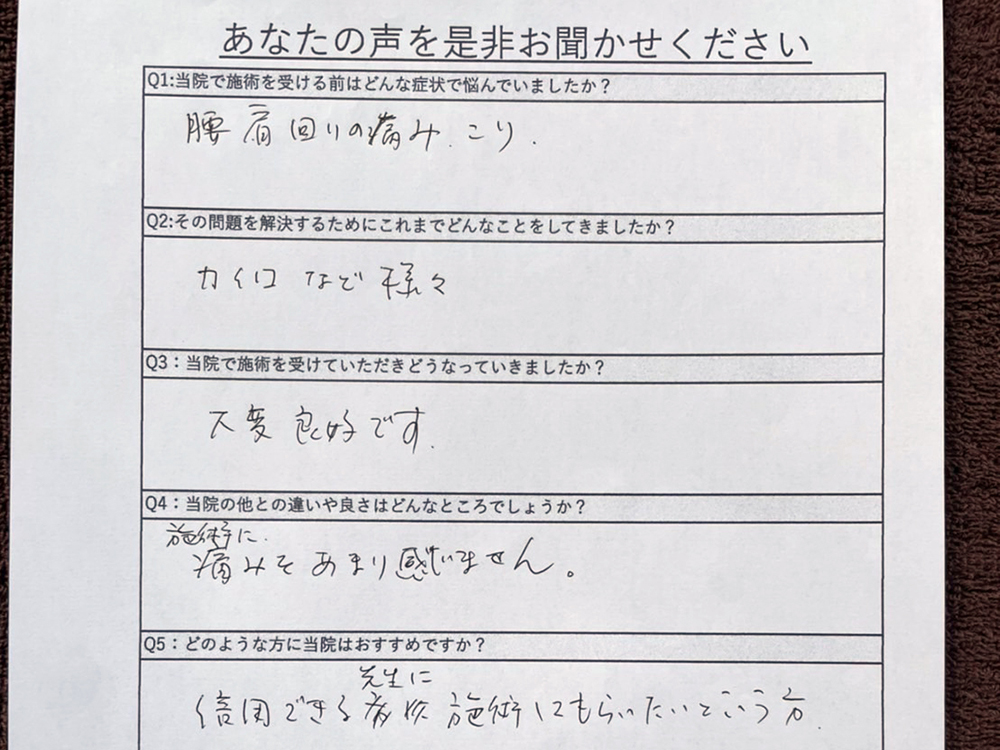 あなたの声を是非お聞かせください
Q1:当院で施術を受ける前はどんな症状で悩んでいましたか？
腰肩回りの痛み.こり.
Q2:その問題を解決するためにこれまでどんなことをしてきましたか？
カイロ など 様々
Q3：当院で施術を受けていただきどうなっていきましたか？
大変良好です.
Q4：当院の他との違いや良さはどんなところでしょうか？
施術に.
痛みをあまり感じません。
Q5：どのような方に当院はおすすめですか？
先生に
信用できる 施術してもらいたいという方.